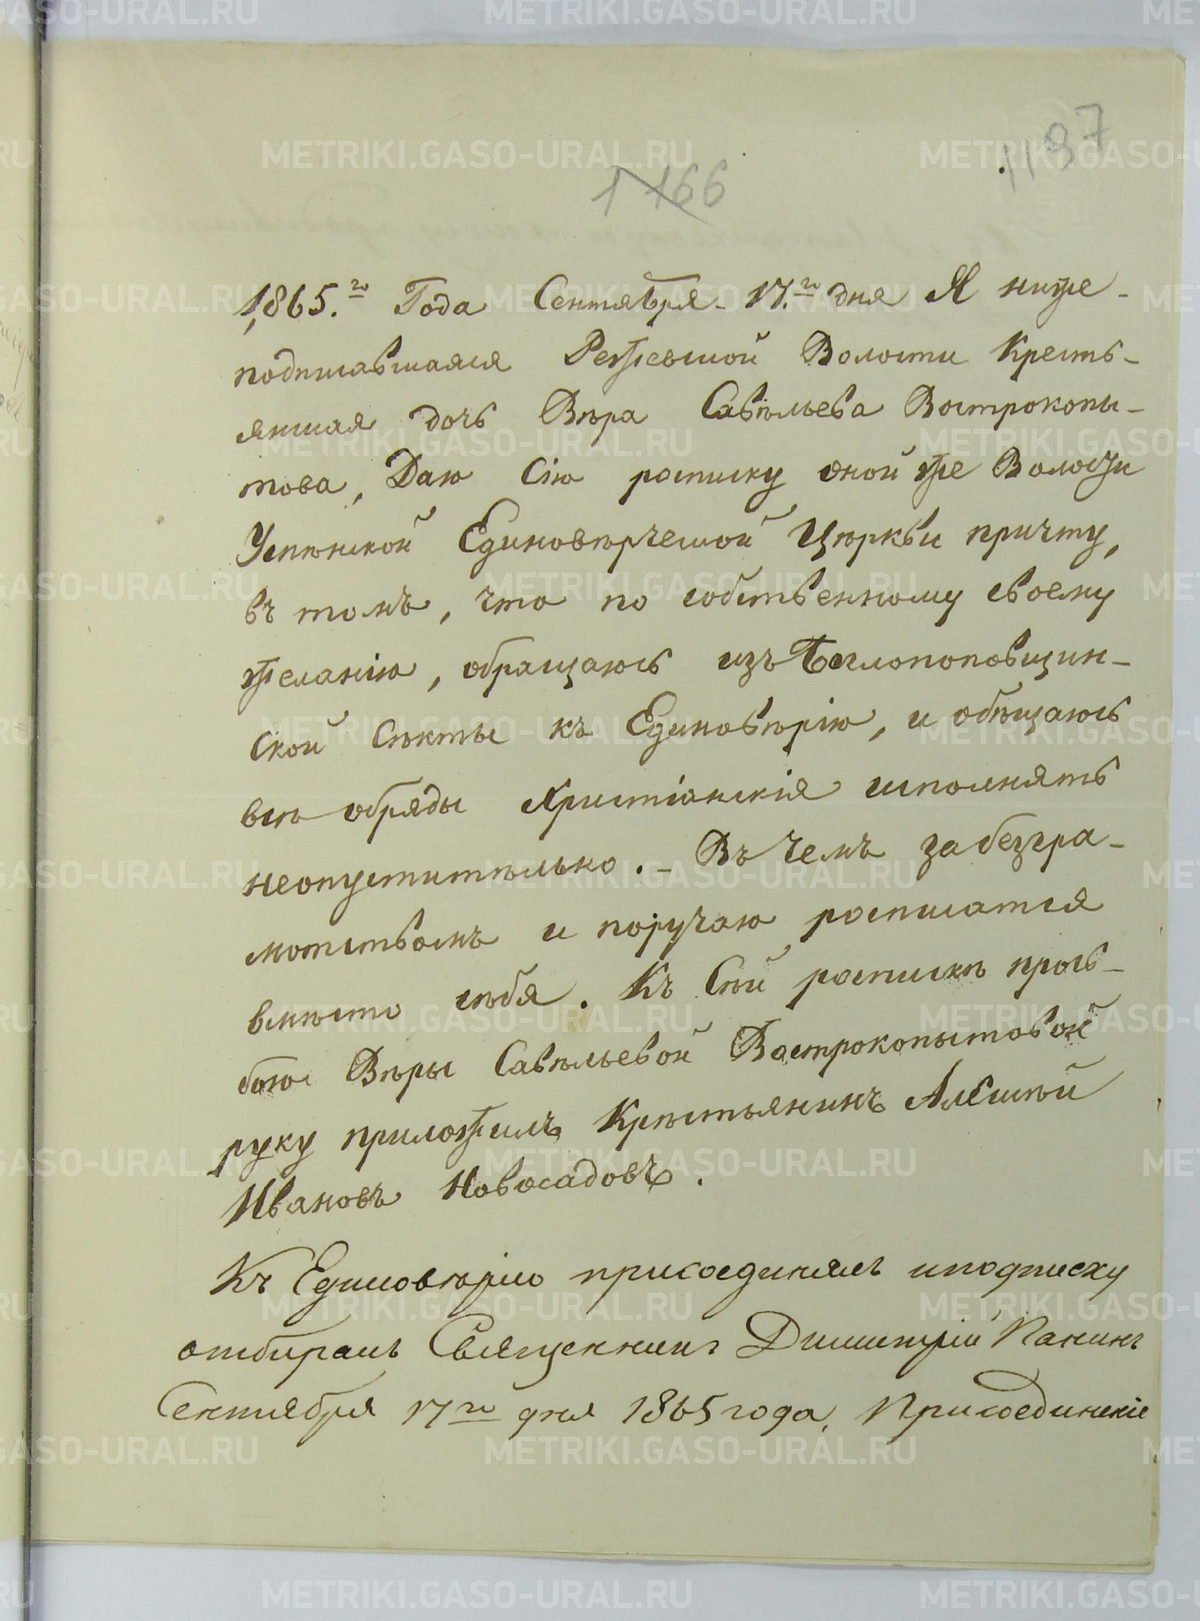 1197
1166
1865.го Года Сентября 17.го дня Я ниже-
подписавшаяся Режевской Волости Кресть-
янская дочь Вѣра Савѣльева Вострокопы-
това, Даю Сію росписку оной же Волости
Успѣнской Единовѣрческой Цѣркви причту,
въ томъ, что по собственному своему
желанію, обращаюсь изъ Бѣглопоповщин-
ской Сѣкты къ Единовѣрію, и обѣщаюсь
всѣ обряды Христіанскія исполнять
неопустительно. - Въ Чемъ за безгра-
мотствомъ и поручаю росписатся
вмѣсто себя. Къ Сѣй росписки прозь-
бою Вѣры Савѣльевой Вострокопытовой
руку приложилъ Крѣстьянинъ Алексѣй
Ивановъ Новосадовъ.
Къ Единовѣрію присоединялъ и подписку
отбиралъ Священникъ Димитрій Панинъ
Сентября 17го дня 1865 года. Присоединеніе